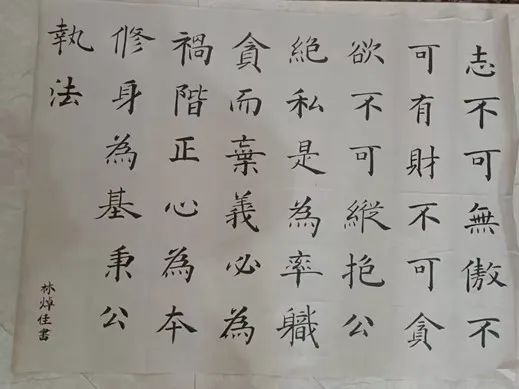 志不可無傲不
可有財不可貪
欲不可縱抱公
絶私是為率職
貪而棄義必為
禍階正心為本
修身為基秉公
執法
林焯佳書